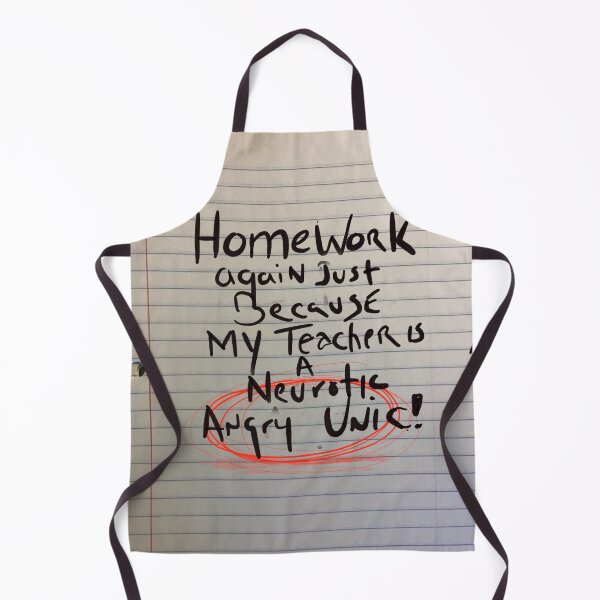 HomeWork
again Just
Because
My Teacher is
A
Neurotic
Angry UNic!